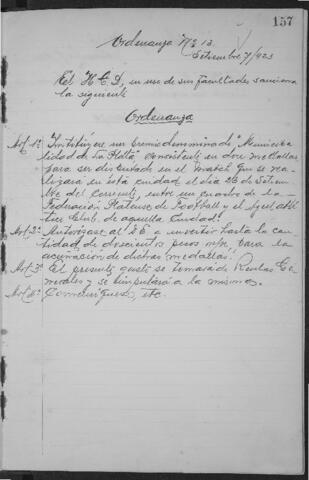 157
Ordenanza No 13
Setiembre 7/923
El H.C.D, en uso de sus facultades sanciona
la siguiente
Ordenanza
Art. 1º Instituyese un premio denominado, "Municipa
lidad de La Plata" consistente en doce medallas
para ser disputado en el match que se rea-
lizará en esta ciudad el día 16 de Setiem
bre del corriente, entre un cuadro de la
Federación Platense de Football y el Sgel. Ath
tier Club de aquella ciudad.
Art. 2º Autorizase al D.E. a invertir hasta la can
tidad de doscientos pesos m/n para la
acuñación de dichas medallas.
Art. 3º El presente gasto se tomará de Rentas Ge-
nerales y se imputará a la misma.
Art. 4º Comuníquese, etc.